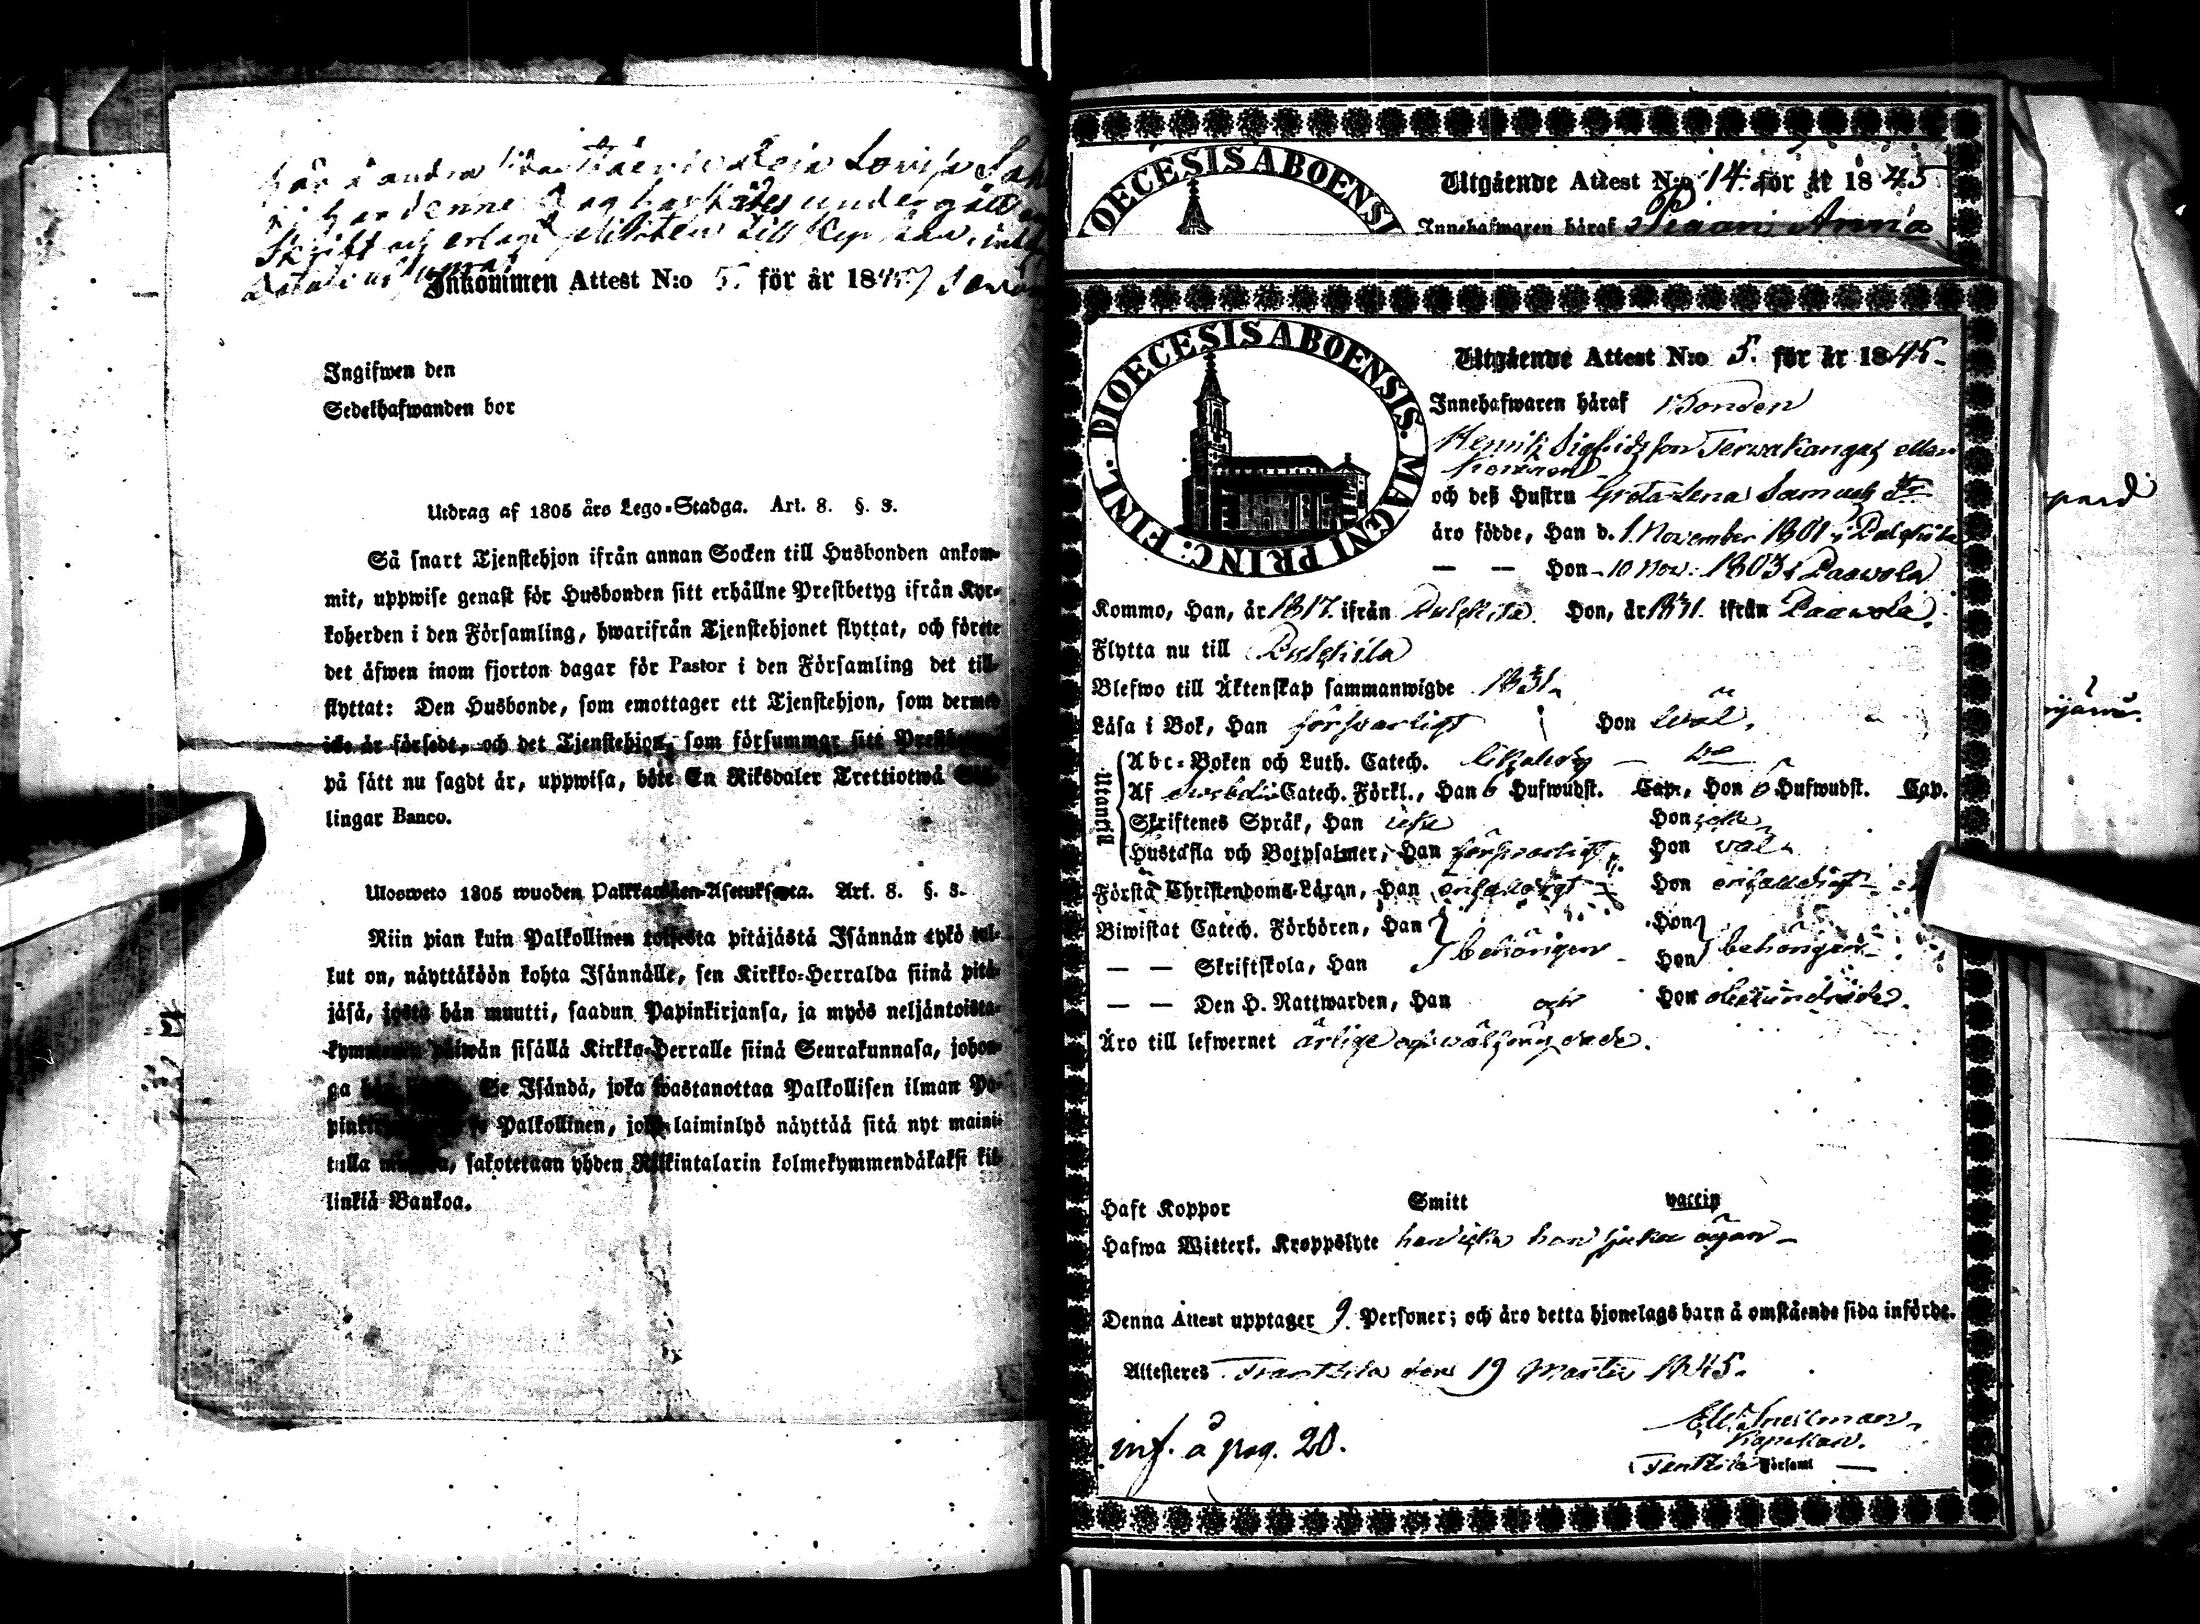 här å andra sidan Lovisa
denne dag undergått
Skrift och erlagt till
Inkommen Attest N:o 5. för år 1845
Ingifwen den
Sedelhafwanden bor
Utdrag af 1805 års Lego-Stadga. Art. 8. §. 3.
Så snart Tjenstehjon ifrån annan Socken till Husbonden ankom-
mit, uppwise genast för Husbonden sitt erhållne Prestbetyg ifrån Kyr-
koherden i den Församling, hwarifrån Tjenstehjonet flyttat, och förete
det äfwen inom fjorton dagar för Pastor i den Församling det till-
flyttat: Den Husbonde, som emottager ett Tjenstehjon, som dermed
icke är försedt, och det Tjenstehjon, som försummar sitt
på sätt nu sagdt är, uppwisa, böte En Riksdaler Trettiotwå
lingar Banco.
Ulosweto 1805 wuoden Palkkawäen-Asetuksesta. Art. 8. §. 3.
Niin pian kuin Palkollinen toisesta pitäjästä Isännän tykö tul-
lut on, näyttäköön kohta Isännälle, sen Kirkko-Herralda siinä pitä-
jäsä, josta hän muutti, saadun Papinkirjansa, ja myös neljäntoista-
kymmenen päiwän sisällä Kirkko-Herralle siinä Seurakunnasa, johon-
ga Se Isändä, joka wastanottaa Palkollisen ilman Pa-
Palkollinen, joka laiminlyö näyttää sitä nyt maini-
tulla sakotetaan yhden Riikintalarin kolmekymmendäkaksi kil-
linkiä Bankoa.
DIOECESIS ABOENSIS
Utgående Attest N:o 14. för år 1845
Innehafwaren häraf Pigan Anna
DIOECESIS ABOENSIS. MAGNI PRINC: FINL.
Utgående Attest N:o 5. för år 1845.
Innehafwaren häraf Bonden
Henrik Sigfridsson Terwakangas eller
och deß Hustru Greta Lena Samuels dr
äro födde, Han d. 1. November 1801 i Pulkkila
— — Hon 10 Nov: 1803 i Paavola
Kommo, Han, år 1817. ifrån Pulkkila. Hon, år 1831. ifrån Paavola.
Flytta nu till Pulkkila
Blefwo till Äktenskap sammanwigde 1831.
Läsa i Bok, Han försvarligt Hon wäl.
Utantill
Abc-Boken och Luth. Catech.
Af Svebelii Catech. Förkl., Han 6 Hufwudst. Cap., Hon 6 Hufwudst. Cap.
Skriftenes Språk, Han icke Hon icke
Hustafla och Botpsalmer, Han försvarligt Hon wäl
Första Christendoms-Läran, Han enfaldigt Hon enfaldigt
Biwistat Catech. Förhören, Han Hon
— — Skriftskola, Han behörigen Hon behörigen
— — Den H. Nattwarden, Han och Hon obehindrade.
Äro till lefwernet ärlige och wälfrägdade.
Haft Koppor Smitt vaccin
Hafwa Witterl. Kroppslyte hon icke han sjuka ögon
Denna Attest upptager 9. Personer; och äro detta hjonelags barn å omstående sida införde.
Attesteres Frantsila den 19 Martii 1845.
Snellman
Kapellan.
Frantsila Församl
inf. å pag. 20.